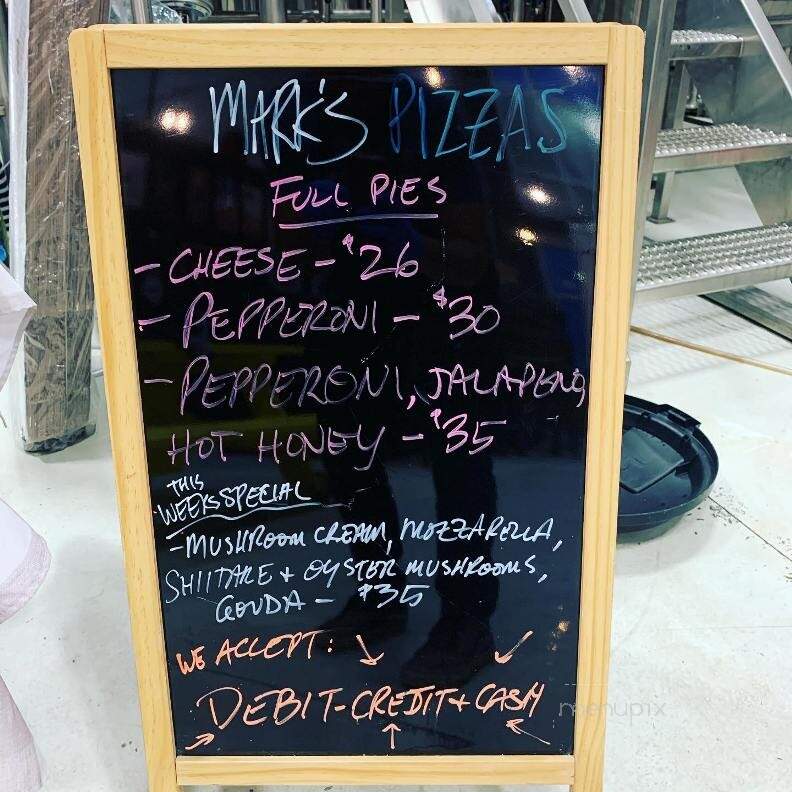 MARK'S PIZZAS
FULL PIES
- CHEESE - $26
- PEPPERONI - $30
- PEPPERONI, JALAPENO,
HOT HONEY - $35
THIS
WEEKS SPECIAL
- MUSHROOM CREAM, MOZZARELLA,
SHIITAKE + OYSTER MUSHROOMS,
GOUDA - $35
WE ACCEPT:
DEBIT - CREDIT + CASH
menupix